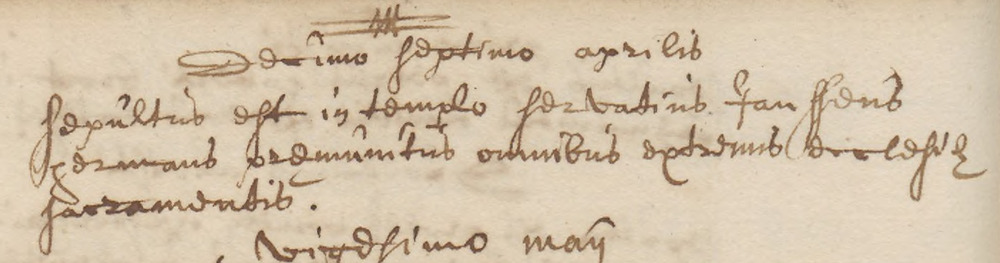 Decimo septimo aprilis
sepultus est in templo servatius Janssens
germans præmunitus omnibus extremis ecclesiæ
sacramentis.
vigesimo maij